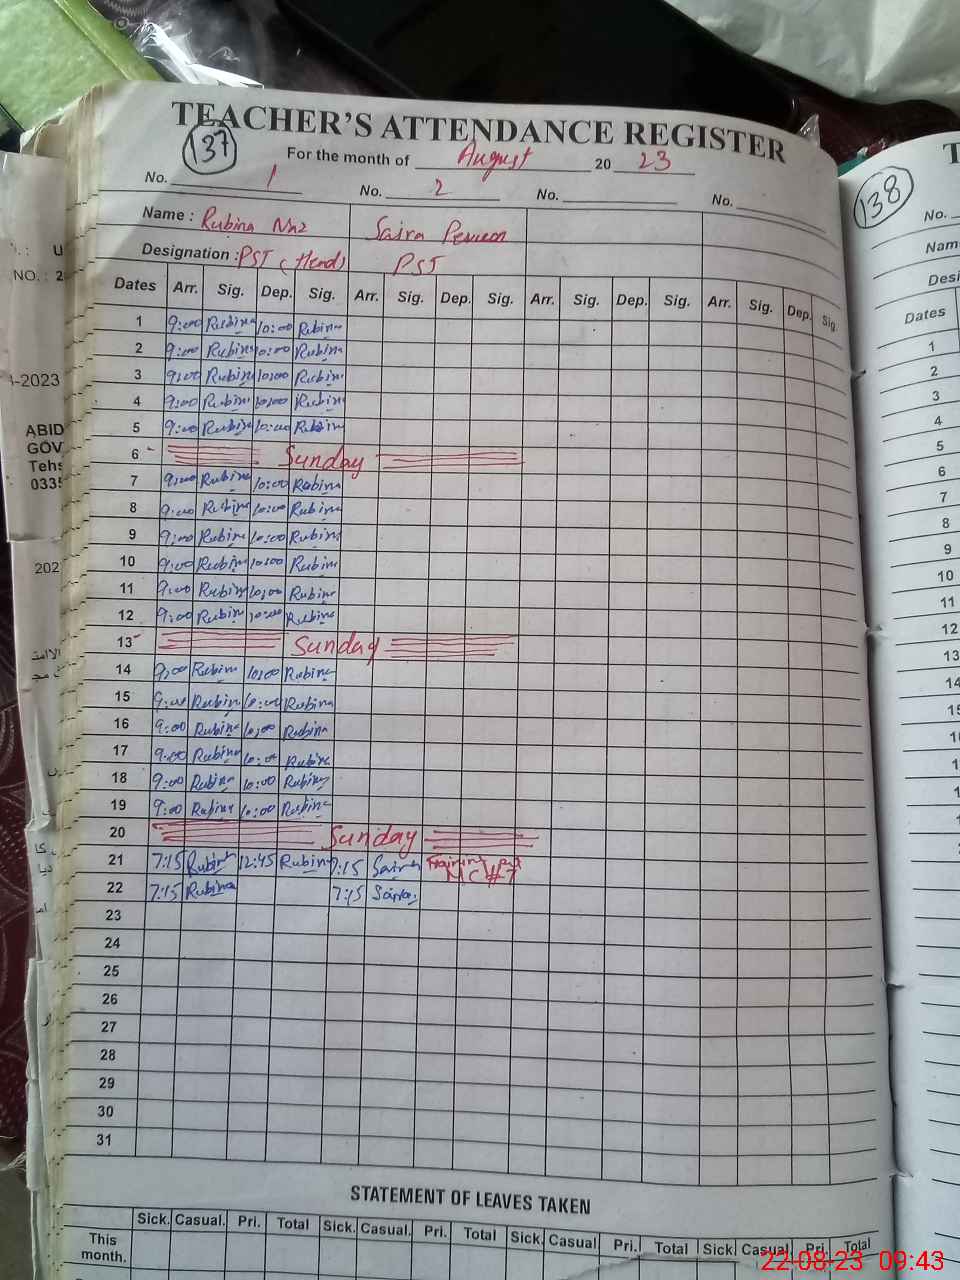 TEACHER'S ATTENDANCE REGISTER
137
For the month of August 2023
No. 1 No. 2 No. No.
Name : Rubina Naz Saira Perveen
Designation : PST (Head) PST
Dates Arr. Sig. Dep. Sig. Arr. Sig. Dep. Sig. Arr. Sig. Dep. Sig. Arr. Sig. Dep. Sig.
1 9:00 Rubina 10:00 Rubina
2 9:00 Rubina 10:00 Rubina
3 9:00 Rubina 10:00 Rubina
4 9:00 Rubina 10:00 Rubina
5 9:00 Rubina 10:00 Rubina
6 Sunday
7 9:00 Rubina 10:00 Rubina
8 9:00 Rubina 10:00 Rubina
9 9:00 Rubina 10:00 Rubina
10 9:00 Rubina 10:00 Rubina
11 9:00 Rubina 10:00 Rubina
12 9:00 Rubina 10:00 Rubina
13 Sunday
14 9:00 Rubina 10:00 Rubina
15 9:00 Rubina 10:00 Rubina
16 9:00 Rubina 10:00 Rubina
17 9:00 Rubina 10:00 Rubina
18 9:00 Rubina 10:00 Rubina
19 9:00 Rubina 10:00 Rubina
20 Sunday
21 7:15 Rubina 12:45 Rubina 7:15 Saira Training
MC #7
22 7:15 Rubina 7:15 Saira
23
24
25
26
27
28
29
30
31
STATEMENT OF LEAVES TAKEN
Sick. Casual. Pri. Total Sick. Casual. Pri. Total Sick. Casual Pri. Total Sick Casual Pri. Total
This
month.
138
No.
Dates
1
2
3
4
5
6
7
8
9
10
11
12
13
14
NO. : 2
-2023
ABID
GOV
Tehs
033
202
22-08-23 09:43